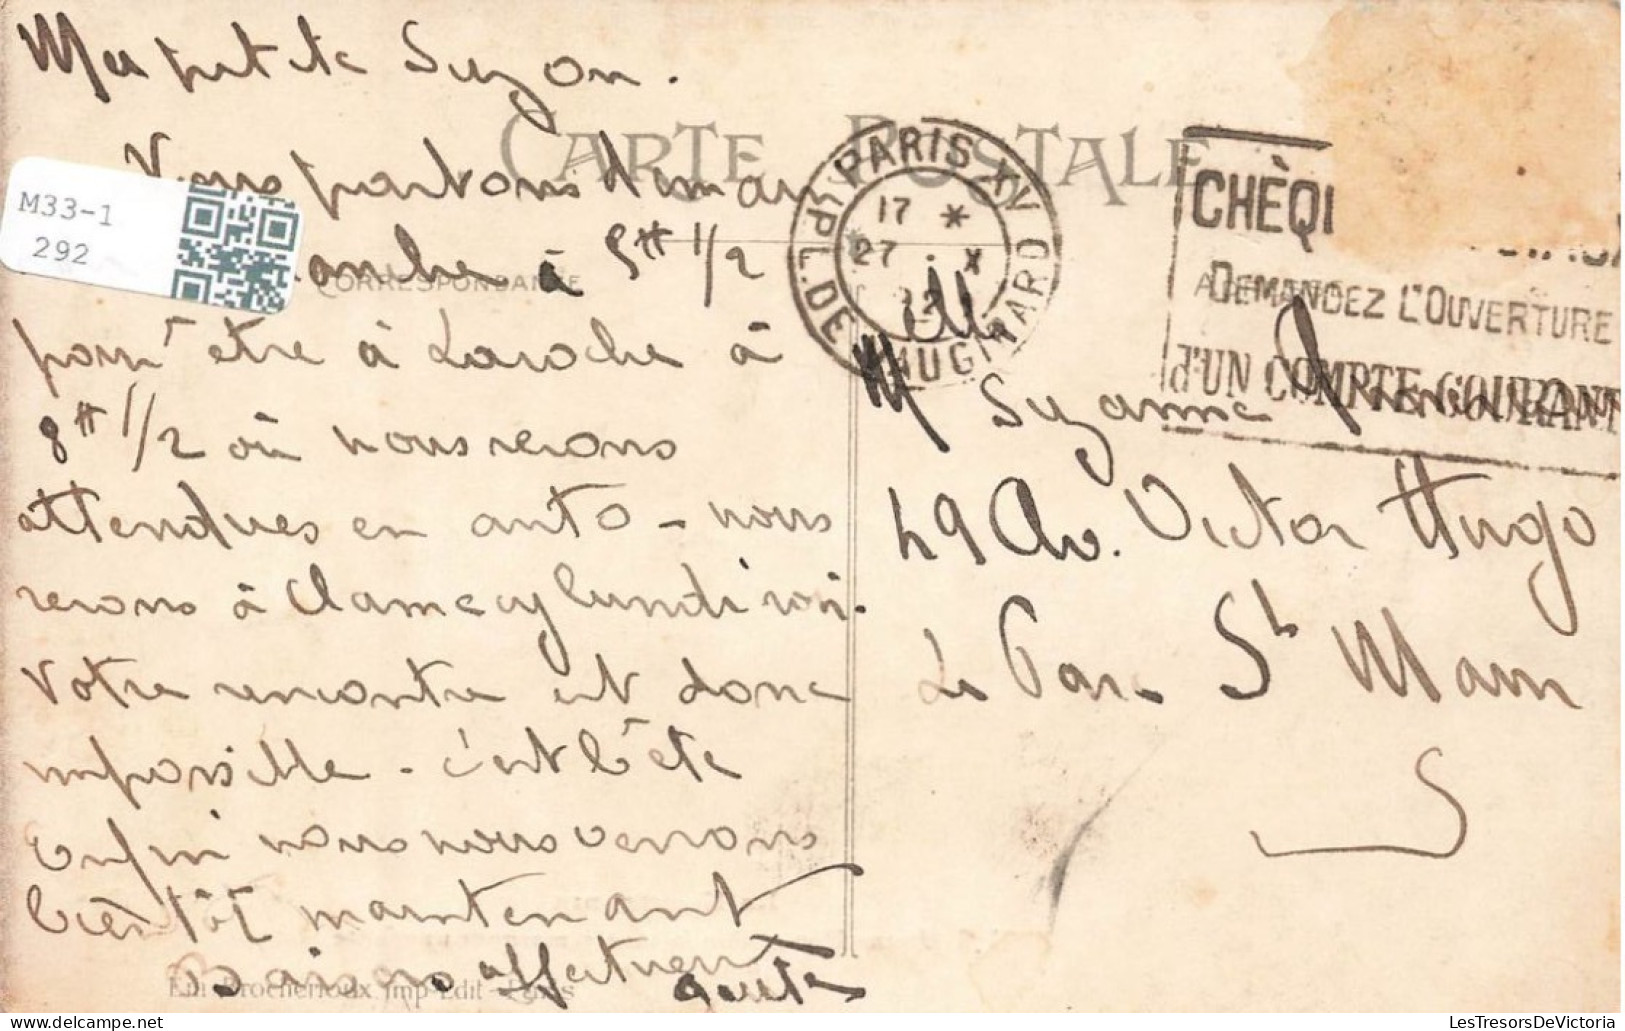 Ma petite Suzon.
CARTE POSTALE
Nous partons diman
M33-1
292
anche à 5H 1/2
CORRESPONDANCE
pour être à Laroche à
8H 1/2 où nous serons
attendues en auto - nous
serons à Clamecy lundi soir.
Votre rencontre est donc
impossible - c'est bête
Enfin nous nous verrons
bientôt maintenant
Baisers affectueux
Em Brocherioux, Imp Edit - Paris
PARIS XV
17 *
27 X
22
PL. DE VAUGIRARD
CHÈQ
DEMANDEZ L'OUVERTURE
d'UN COMPTE COURANT
Mlle Suzanne
49 Av. Victor Hugo
Le Parc St Maur
S
LesTresorsDeVictoria